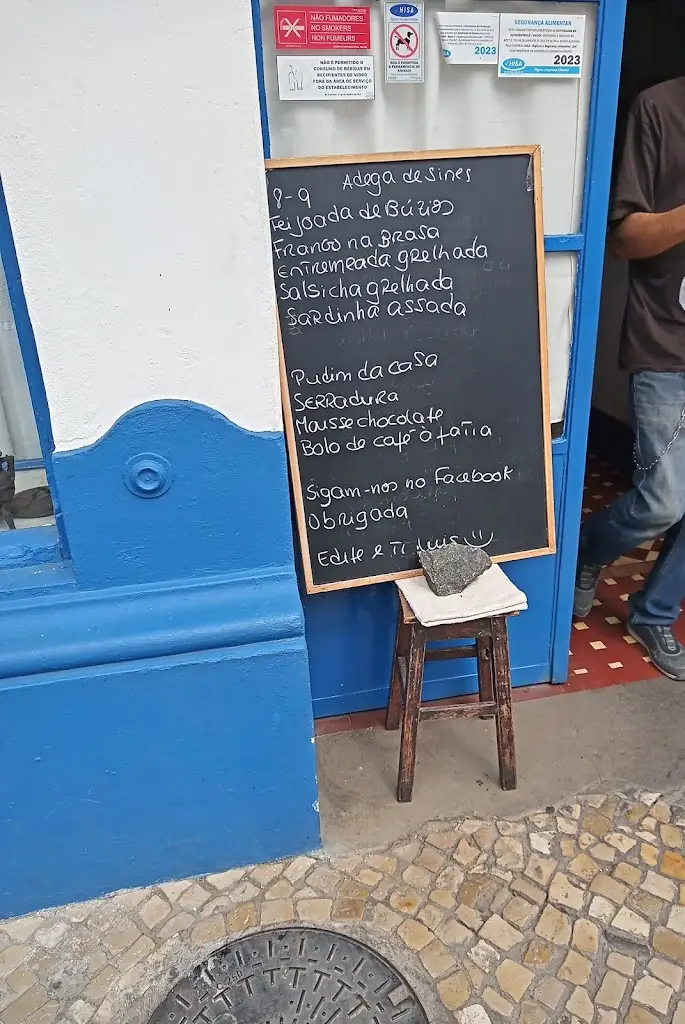 NÃO FUMADORES
NO SMOKERS
NON FUMEURS
NÃO É PERMITIDO O
CONSUMO DE BEBIDAS EM
RECIPIENTES DE VIDRO
FORA DA ÁREA DE SERVIÇO
DO ESTABELECIMENTO
HISA
NÃO É PERMITIDA
A PERMANÊNCIA DE
ANIMAIS
2023
SEGURANÇA ALIMENTAR
2023
HISA
8-9 Adega de Sines
Feijoada de Búzios
Frango na Brasa
Entremeada grelhada
Salsicha grelhada
Sardinha assada
Pudim da casa
SERRadura
Mousse chocolate
Bolo de café ó fatia
Sigam-nos no Facebook
Obrigada
Edite e Ti Luis